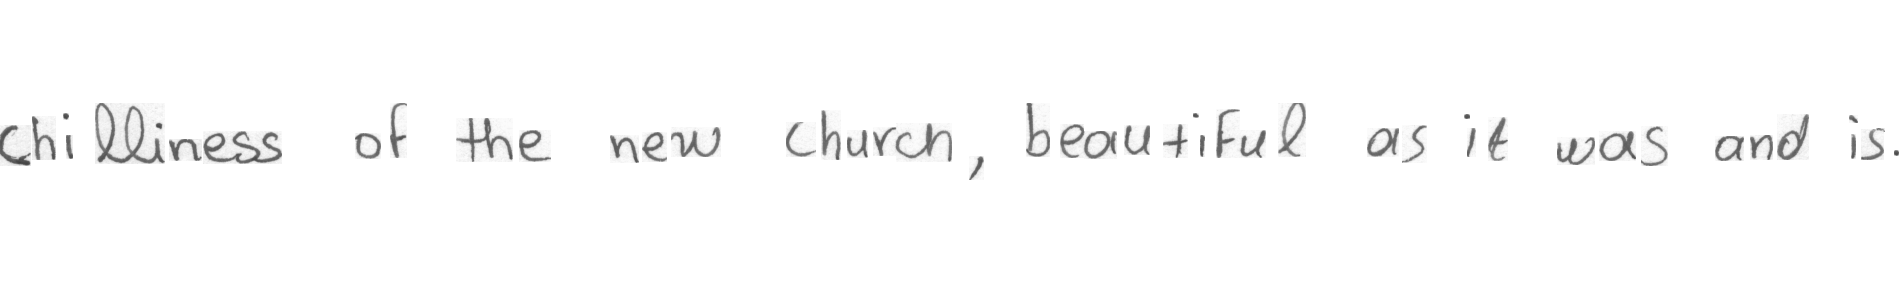 chilliness of the new church, beautiful as it was and is.